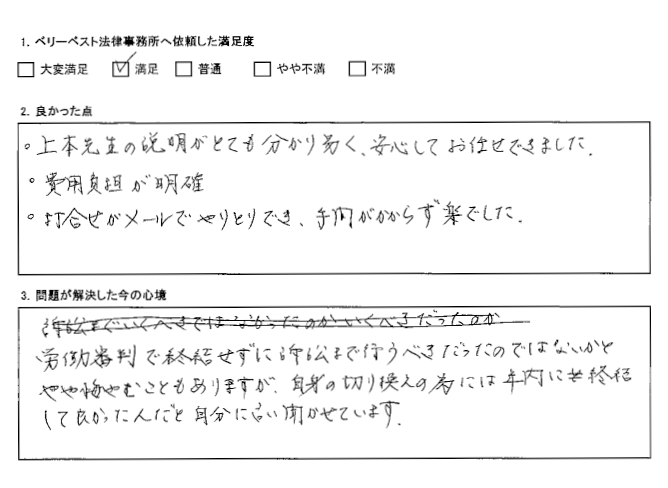 1. ベリーベスト法律事務所へ依頼した満足度
□ 大変満足 ☑ 満足 □ 普通 □ やや不満 □ 不満
2. 良かった点
。上本先生の説明がとても分かり易く、安心してお任せできました.
。費用負担が明確
。打合せがメールでやりとりでき、手間がかからず楽でした.
3. 問題が解決した今の心境
訴訟までいくべきではなかったのかいくべきだったのか
労働審判で終結せずに訴訟まで行うべきだったのではないかと
やや悔やむこともありますが、自身の切り換えの為には年内に終結
して良かったんだと自分に言い聞かせています.